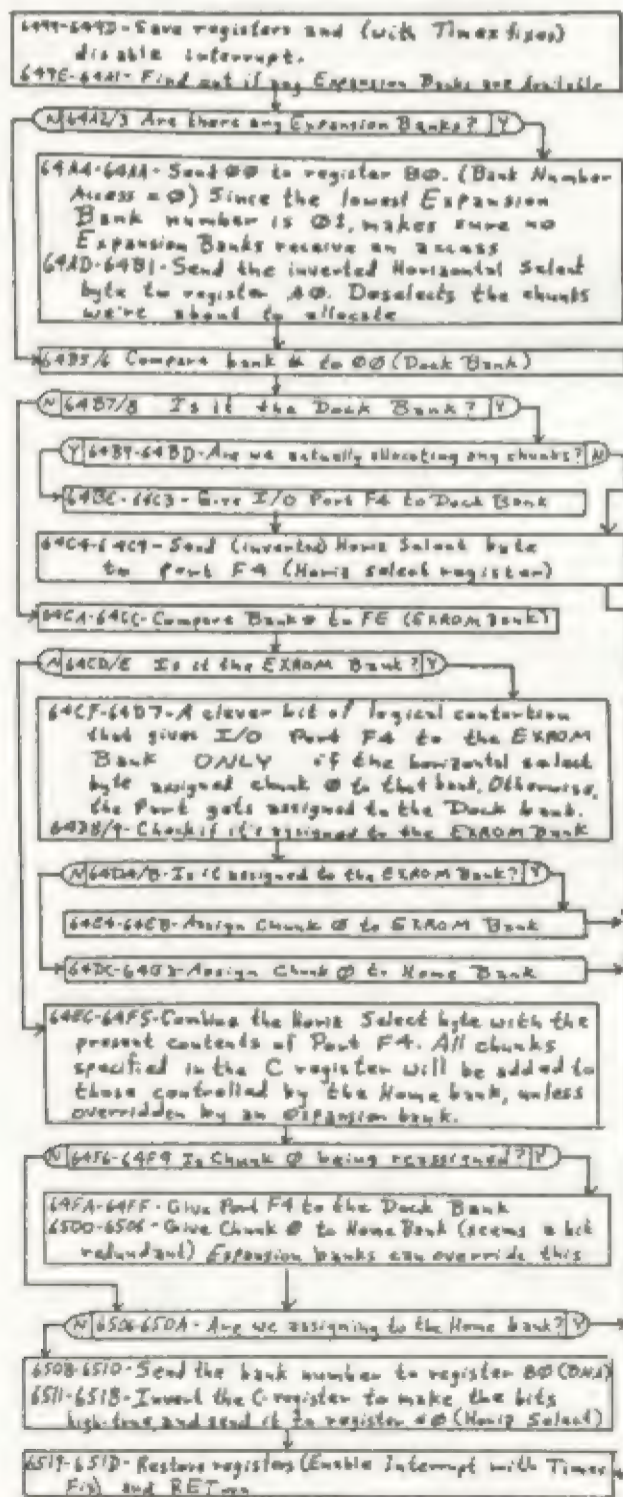 6499-649D-Save registers and (with Timex fixes)
disable interrupt.
649E-64A1-Find out if any Expansion Banks are Available
N 64A2/3 Are there any Expansion Banks? Y
64A4-64AA-Send ØØ to register BØ. (Bank Number
Access = Ø) Since the lowest Expansion
Bank number is Ø1, makes sure no
Expansion Banks receive an access
64AD-64B1-Send the inverted Horizontal Select
byte to register AØ. Deselects the chunks
we're about to allocate
64B5/6 Compare bank # to ØØ (Dock Bank)
N 64B7/8 Is it the Dock Bank? Y
Y 64B9-64BD-Are we actually allocating any chunks? N
64BE-64C3-Give I/O Port F4 to Dock Bank
64C4-64C9-Send (inverted) Horiz Select byte
to Port F4 (Horiz select register)
64CA-64CC-Compare Bank # to FE (EXROM Bank)
N 64CD/E Is it the EXROM Bank? Y
64CF-64D7-A clever bit of logical contortion
that gives I/O Port F4 to the EXROM
Bank ONLY if the horizontal select
byte assigned chunk Ø to that bank. Otherwise,
the Port gets assigned to the Dock bank.
64D8/9-Check if it's assigned to the EXROM Bank
N 64DA/B-Is it assigned to the EXROM Bank? Y
64E4-64EB-Assign Chunk Ø to EXROM Bank
64DC-64E3-Assign Chunk Ø to Home Bank
64EC-64F5-Combine the Horiz Select byte with the
present contents of Port F4. All chunks
specified in the C register will be added to
those controlled by the Home bank, unless
overridden by an expansion bank.
N 64F6-64F9 Is Chunk Ø being reassigned? Y
64FA-64FF-Give Port F4 to the Dock Bank
6500-6505-Give Chunk Ø to Home Bank (seems a bit
redundant) Expansion banks can override this
N 6506-650A-Are we assigning to the Home bank? Y
650B-6510-Send the bank number to register BØ (BNA)
6511-6518-Invert the C register to make the bits
high-true and send it to register AØ (Horiz Select)
6519-651D-Restore registers (Enable Interrupt with Timex
Fix) and RETurn